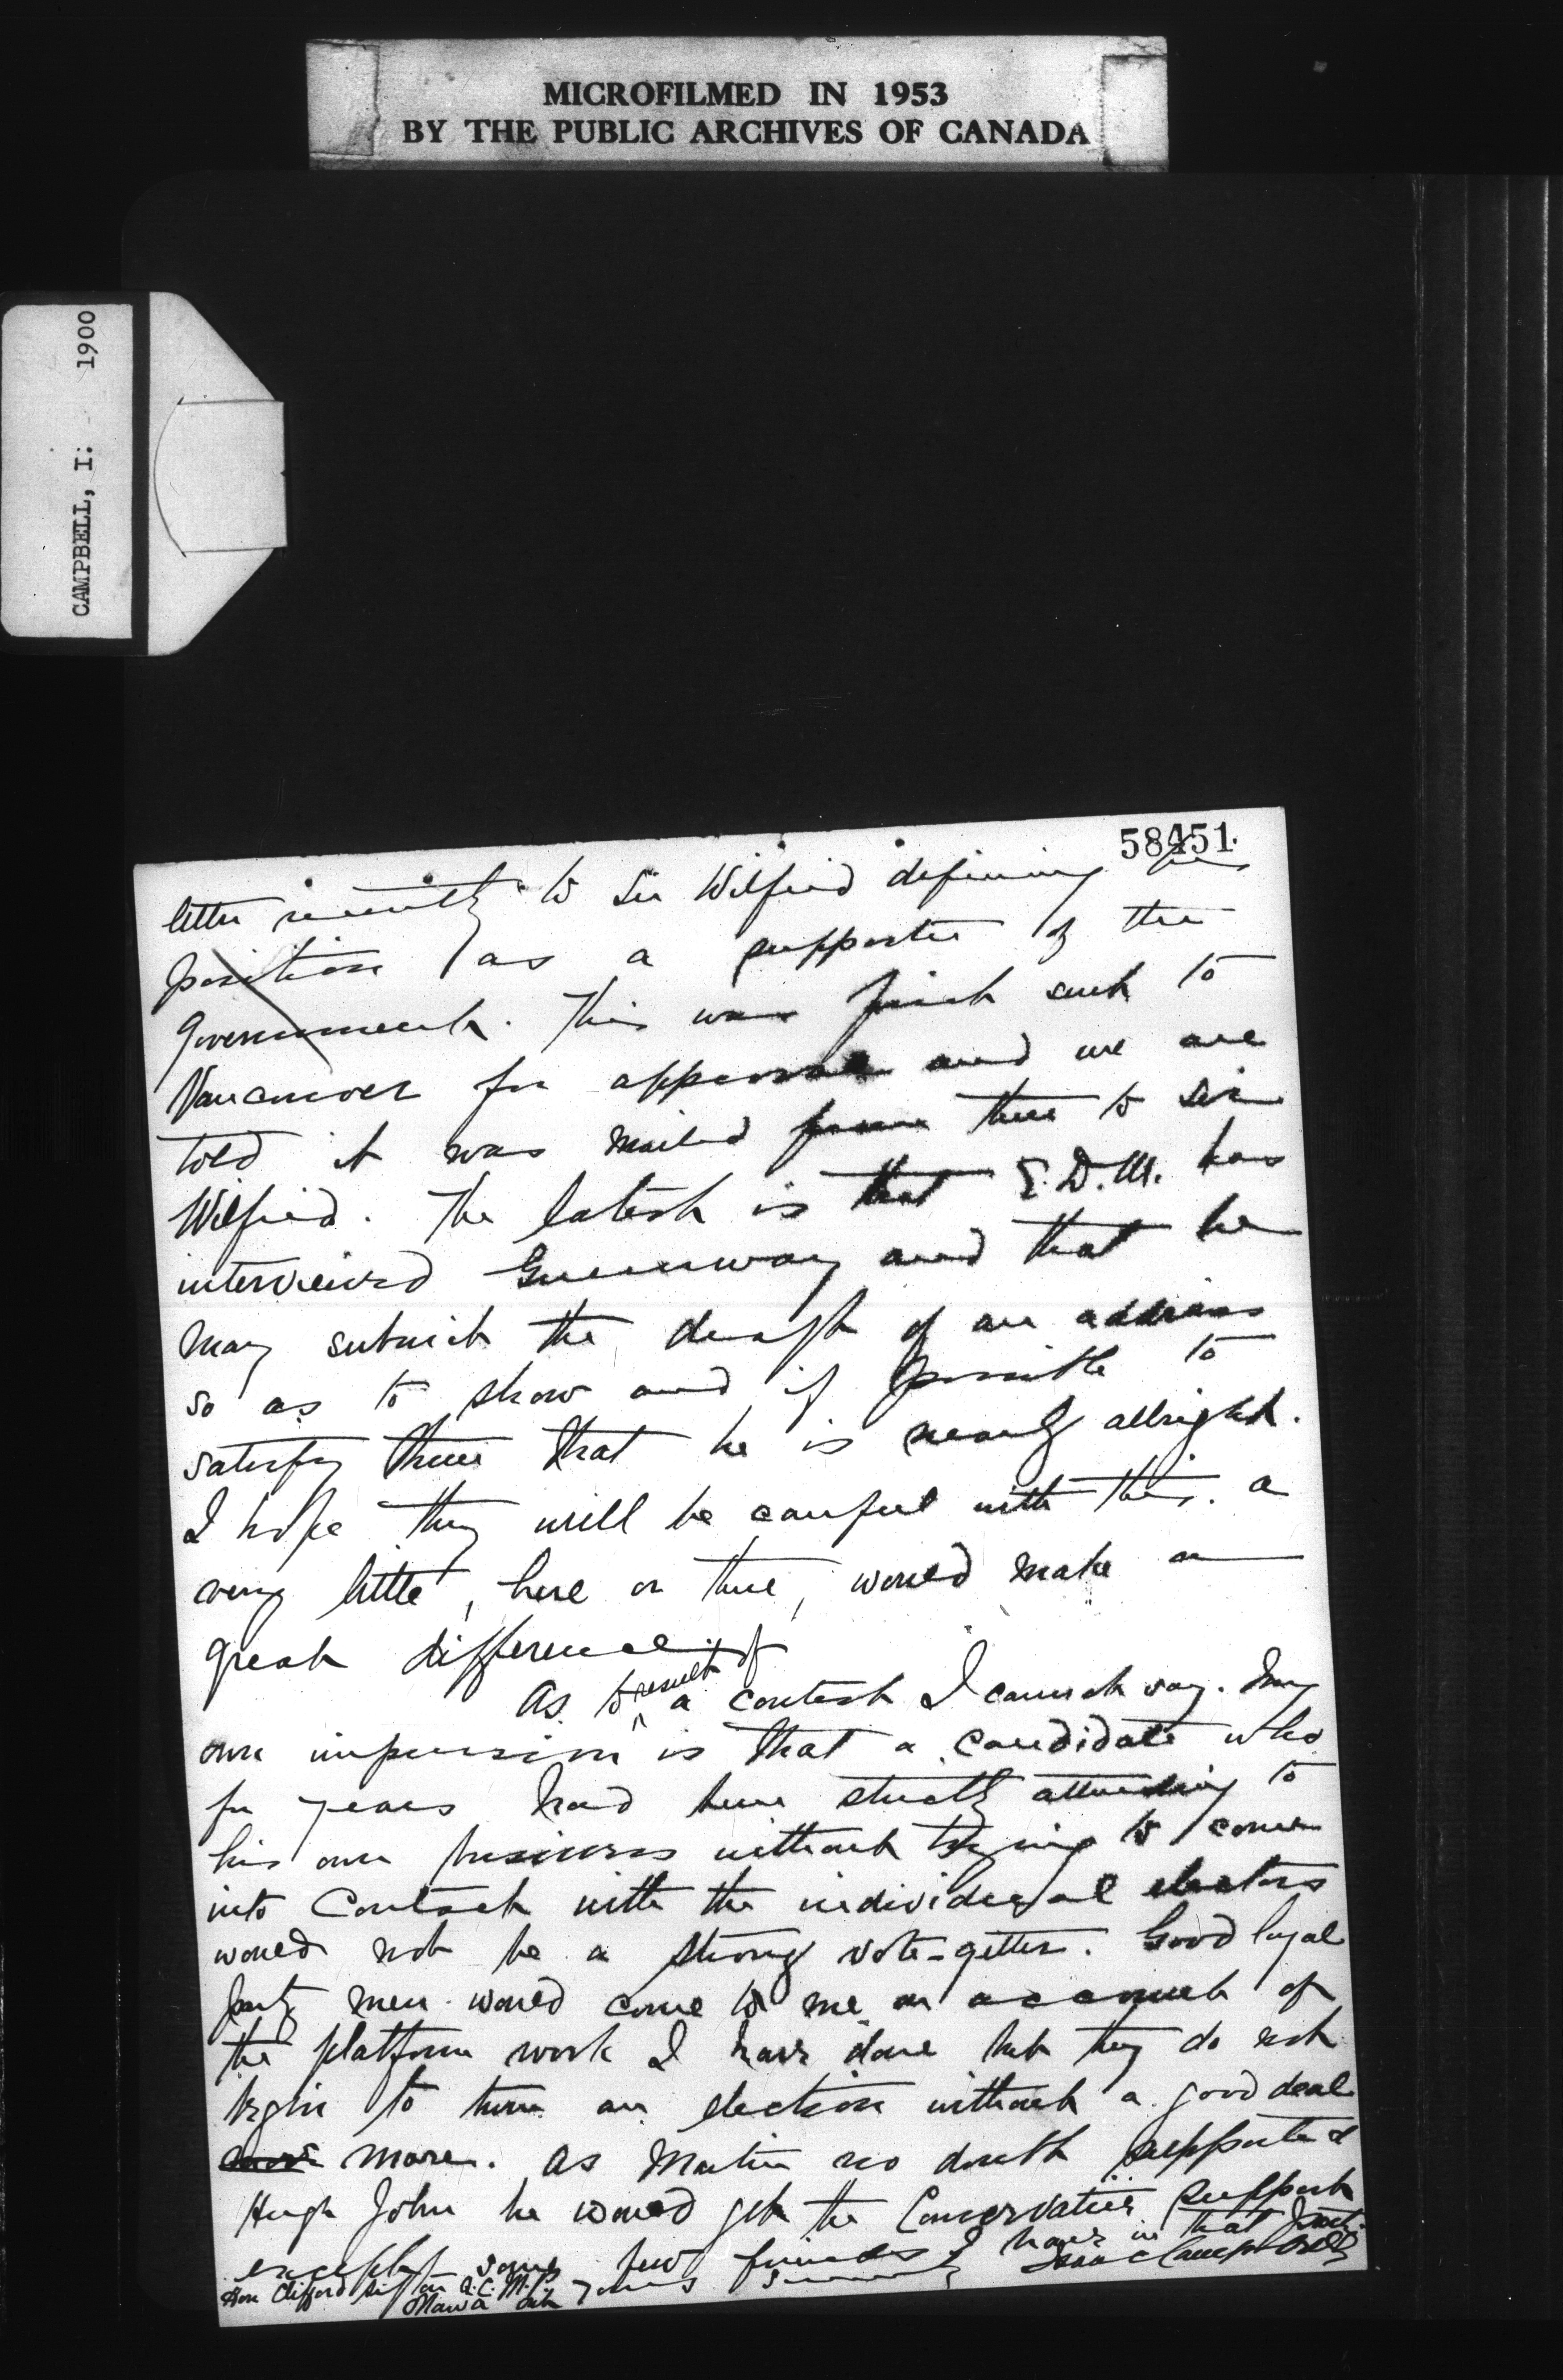 MICROFILMED IN 1953
BY THE PUBLIC ARCHIVES OF CANADA
CAMPBELL, I: 1900
58451
letter recently to Sir Wilfrid defining his
position as a supporter of the
Government. This was first sent to
Vancouver for approval and we are
told it was mailed from there to Sir
Wilfrid. The latest is that E.D.M. has
interviewed Greenway and that he
may submit the draft of an address
so as to show and if possible to
satisfy them that he is nearly allright.
I hope they will be careful with this. a
very little, here or there, would make a
great difference.
As to result of a contest I cannot say. My
own impression is that a candidate who
for years had been strictly attending to
his own business without trying to come
into contact with the individual electors
would not be a strong vote-getter. Good loyal
party men would come to me on account of
the platform work I have done but they do not
begin to turn an election without a good deal
more. As Martin no doubt supported
Hugh John he would get the Conservative support
except some few friends I have in that party.
Yours sincerely Isaac Campbell
Hon Clifford Sifton Q.C. M.P.
Ottawa Ont